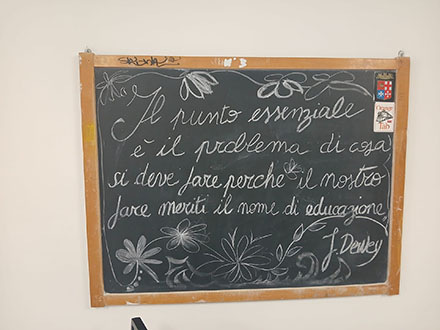 Il punto essenziale
è il problema di cosa
si deve fare perché il nostro
fare meriti il nome di educazione
J. Dewey